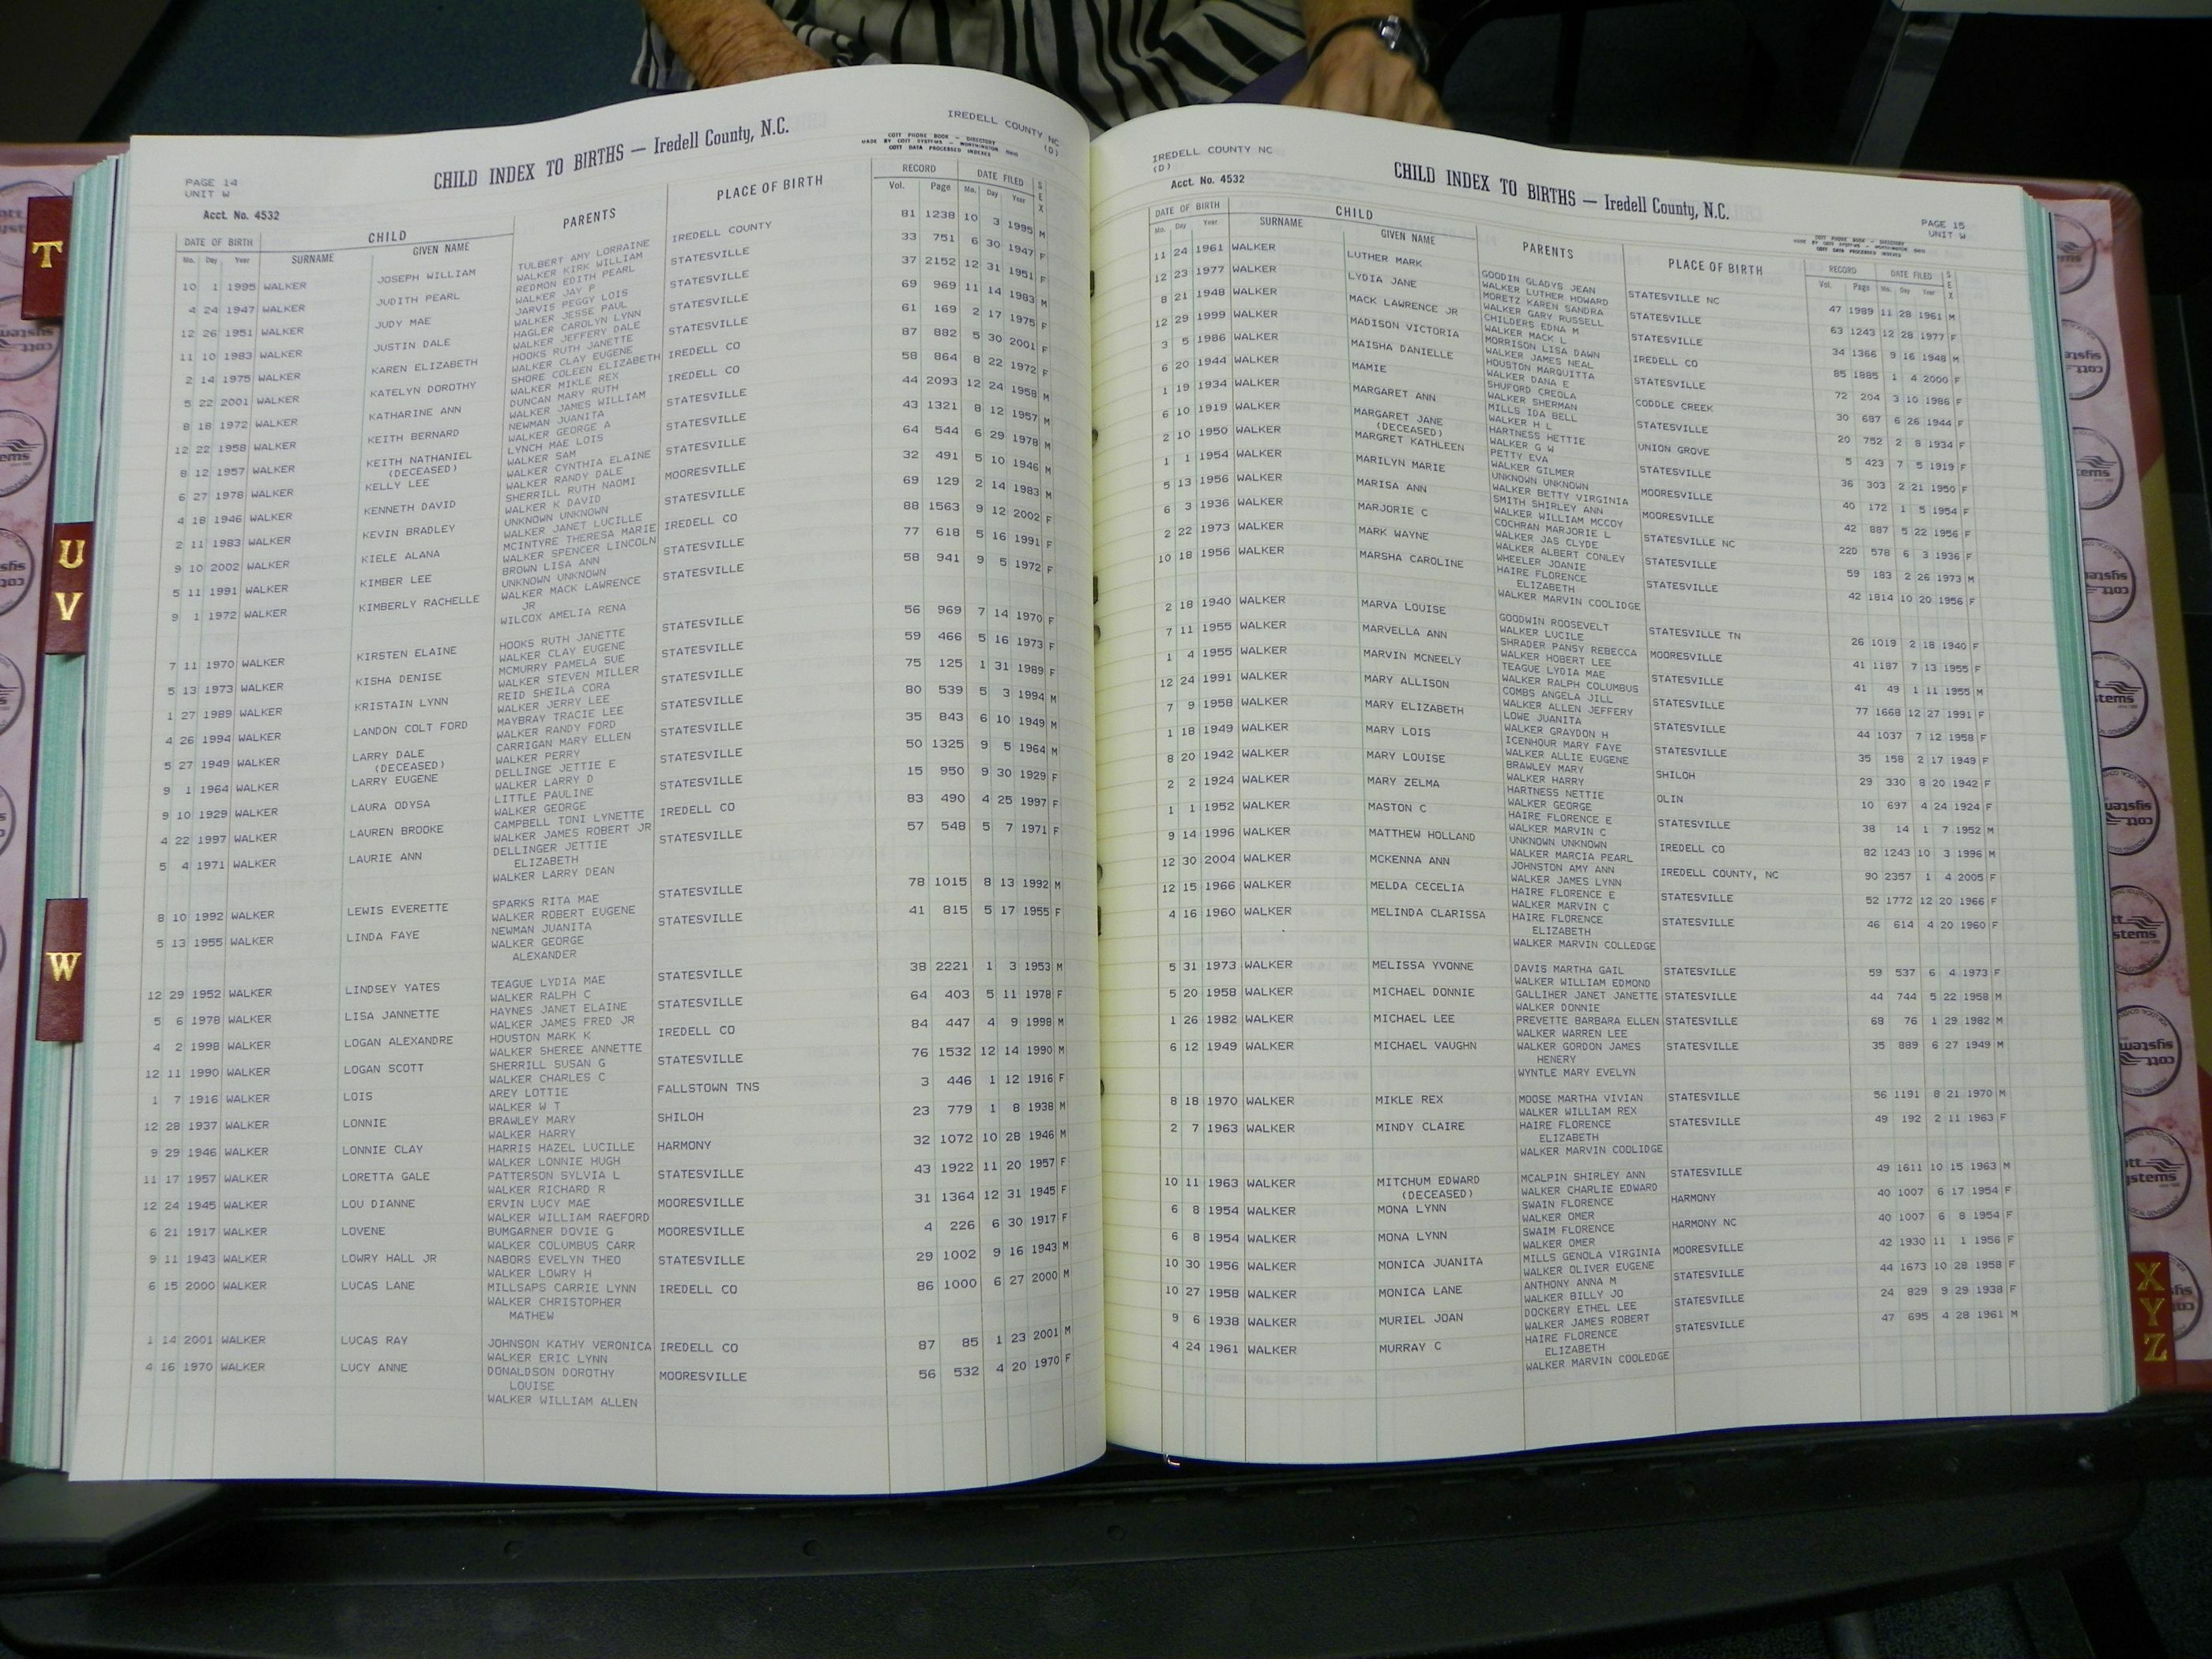 IREDELL COUNTY NC
(D)
CHILD INDEX TO BIRTHS — Iredell County, N.C.
COTT PHONE BOOK - DIRECTORY
MADE BY COTT SYSTEMS - WORTHINGTON OHIO
COTT DATA PROCESSED INDEXES
PAGE 14
UNIT W
Acct. No. 4532
DATE OF BIRTH CHILD PARENTS PLACE OF BIRTH RECORD DATE FILED SEX
Mo. Day Year SURNAME GIVEN NAME Vol. Page Mo. Day Year
10 1 1995 WALKER JOSEPH WILLIAM TULBERT AMY LORRAINE IREDELL COUNTY 81 1238 10 3 1995 M
WALKER KIRK WILLIAM
4 24 1947 WALKER JUDITH PEARL REDMON EDITH PEARL STATESVILLE 33 751 6 30 1947 F
WALKER JAY P
12 26 1951 WALKER JUDY MAE JARVIS PEGGY LOIS STATESVILLE 37 2152 12 31 1951 F
WALKER JESSE PAUL
11 10 1983 WALKER JUSTIN DALE HAGLER CAROLYN LYNN STATESVILLE 69 969 11 14 1983 M
WALKER JEFFERY DALE
2 14 1975 WALKER KAREN ELIZABETH HOOKS RUTH JANETTE STATESVILLE 61 169 2 17 1975 F
WALKER CLAY EUGENE
5 22 2001 WALKER KATELYN DOROTHY SHORE COLEEN ELIZABETH IREDELL CO 87 882 5 30 2001 F
WALKER MIKLE REX
8 18 1972 WALKER KATHARINE ANN DUNCAN MARY RUTH IREDELL CO 58 864 8 22 1972 F
WALKER JAMES WILLIAM
12 22 1958 WALKER KEITH BERNARD NEWMAN JUANITA STATESVILLE 44 2093 12 24 1958 M
WALKER GEORGE A
8 12 1957 WALKER KEITH NATHANIEL LYNCH MAE LOIS STATESVILLE 43 1321 8 12 1957 M
(DECEASED) WALKER SAM
6 27 1978 WALKER KELLY LEE WALKER CYNTHIA ELAINE STATESVILLE 64 544 6 29 1978 M
WALKER RANDY DALE
4 18 1946 WALKER KENNETH DAVID SHERRILL RUTH NAOMI MOORESVILLE 32 491 5 10 1946 M
WALKER K DAVID
2 11 1983 WALKER KEVIN BRADLEY UNKNOWN UNKNOWN STATESVILLE 69 129 2 14 1983 M
WALKER JANET LUCILLE
9 10 2002 WALKER KIELE ALANA MCINTYRE THERESA MARIE IREDELL CO 88 1563 9 12 2002 F
WALKER SPENCER LINCOLN
5 11 1991 WALKER KIMBER LEE BROWN LISA ANN STATESVILLE 77 618 5 16 1991 F
UNKNOWN UNKNOWN
9 1 1972 WALKER KIMBERLY RACHELLE WALKER MACK LAWRENCE STATESVILLE 58 941 9 5 1972 F
JR
WILCOX AMELIA RENA
7 11 1970 WALKER KIRSTEN ELAINE HOOKS RUTH JANETTE STATESVILLE 56 969 7 14 1970 F
WALKER CLAY EUGENE
5 13 1973 WALKER KISHA DENISE MCMURRY PAMELA SUE STATESVILLE 59 466 5 16 1973 F
WALKER STEVEN MILLER
1 27 1989 WALKER KRISTAIN LYNN REID SHEILA CORA STATESVILLE 75 125 1 31 1989 F
WALKER JERRY LEE
4 26 1994 WALKER LANDON COLT FORD MAYBRAY TRACIE LEE STATESVILLE 80 539 5 3 1994 M
WALKER RANDY FORD
5 27 1949 WALKER LARRY DALE CARRIGAN MARY ELLEN STATESVILLE 35 843 6 10 1949 M
(DECEASED) WALKER PERRY
9 1 1964 WALKER LARRY EUGENE DELLINGE JETTIE E STATESVILLE 50 1325 9 5 1964 M
WALKER LARRY D
9 10 1929 WALKER LAURA ODYSA LITTLE PAULINE STATESVILLE 15 950 9 30 1929 F
WALKER GEORGE
4 22 1997 WALKER LAUREN BROOKE CAMPBELL TONI LYNETTE IREDELL CO 83 490 4 25 1997 F
WALKER JAMES ROBERT JR
5 4 1971 WALKER LAURIE ANN DELLINGER JETTIE STATESVILLE 57 548 5 7 1971 F
ELIZABETH
WALKER LARRY DEAN
8 10 1992 WALKER LEWIS EVERETTE SPARKS RITA MAE STATESVILLE 78 1015 8 13 1992 M
WALKER ROBERT EUGENE
5 13 1955 WALKER LINDA FAYE NEWMAN JUANITA STATESVILLE 41 815 5 17 1955 F
WALKER GEORGE
ALEXANDER
12 29 1952 WALKER LINDSEY YATES TEAGUE LYDIA MAE STATESVILLE 38 2221 1 3 1953 M
WALKER RALPH C
5 6 1978 WALKER LISA JANNETTE HAYNES JANET ELAINE STATESVILLE 64 403 5 11 1978 F
WALKER JAMES FRED JR
4 2 1998 WALKER LOGAN ALEXANDRE HOUSTON MARK K IREDELL CO 84 447 4 9 1998 M
WALKER SHEREE ANNETTE
12 11 1990 WALKER LOGAN SCOTT SHERRILL SUSAN G STATESVILLE 76 1532 12 14 1990 M
WALKER CHARLES C
1 7 1916 WALKER LOIS AREY LOTTIE FALLSTOWN TNS 3 446 1 12 1916 F
WALKER W T
12 28 1937 WALKER LONNIE BRAWLEY MARY SHILOH 23 779 1 8 1938 M
WALKER HARRY
9 29 1946 WALKER LONNIE CLAY HARRIS HAZEL LUCILLE HARMONY 32 1072 10 28 1946 M
WALKER LONNIE HUGH
11 17 1957 WALKER LORETTA GALE PATTERSON SYLVIA L STATESVILLE 43 1922 11 20 1957 F
WALKER RICHARD R
12 24 1945 WALKER LOU DIANNE ERVIN LUCY MAE MOORESVILLE 31 1364 12 31 1945 F
WALKER WILLIAM RAEFORD
6 21 1917 WALKER LOVENE BUMGARNER DOVIE G MOORESVILLE 4 226 6 30 1917 F
WALKER COLUMBUS CARR
9 11 1943 WALKER LOWRY HALL JR NABORS EVELYN THEO STATESVILLE 29 1002 9 16 1943 M
WALKER LOWRY H
6 15 2000 WALKER LUCAS LANE MILLSAPS CARRIE LYNN IREDELL CO 86 1000 6 27 2000 M
WALKER CHRISTOPHER
MATHEW
1 14 2001 WALKER LUCAS RAY JOHNSON KATHY VERONICA IREDELL CO 87 85 1 23 2001 M
WALKER ERIC LYNN
4 16 1970 WALKER LUCY ANNE DONALDSON DOROTHY MOORESVILLE 56 532 4 20 1970 F
LOUISE
WALKER WILLIAM ALLEN
IREDELL COUNTY NC
(D)
Acct. No. 4532
CHILD INDEX TO BIRTHS — Iredell County, N.C.
PAGE 15
UNIT W
COTT PHONE BOOK - DIRECTORY
MADE BY COTT SYSTEMS - WORTHINGTON OHIO
COTT DATA PROCESSED INDEXES
DATE OF BIRTH CHILD PARENTS PLACE OF BIRTH RECORD DATE FILED SEX
Mo. Day Year SURNAME GIVEN NAME Vol. Page Mo. Day Year
11 24 1961 WALKER LUTHER MARK GOODIN GLADYS JEAN STATESVILLE NC 47 1989 11 28 1961 M
WALKER LUTHER HOWARD
12 23 1977 WALKER LYDIA JANE MORETZ KAREN SANDRA STATESVILLE 63 1243 12 28 1977 F
WALKER GARY RUSSELL
8 21 1948 WALKER MACK LAWRENCE JR CHILDERS EDNA M IREDELL CO 34 1366 9 16 1948 M
WALKER MACK L
12 29 1999 WALKER MADISON VICTORIA MORRISON LISA DAWN STATESVILLE 85 1885 1 4 2000 F
WALKER JAMES NEAL
3 5 1986 WALKER MAISHA DANIELLE HOUSTON MARQUITTA CODDLE CREEK 72 204 3 10 1986 F
WALKER DANA E
6 20 1944 WALKER MAMIE SHUFORD CREOLA STATESVILLE 30 687 6 26 1944 F
WALKER SHERMAN
1 19 1934 WALKER MARGARET ANN MILLS IDA BELL UNION GROVE 20 752 2 8 1934 F
WALKER H L
6 10 1919 WALKER MARGARET JANE HARTNESS HETTIE STATESVILLE 5 423 7 5 1919 F
(DECEASED) WALKER G W
2 10 1950 WALKER MARGRET KATHLEEN PETTY EVA MOORESVILLE 36 303 2 21 1950 F
WALKER GILMER
1 1 1954 WALKER MARILYN MARIE UNKNOWN UNKNOWN MOORESVILLE 40 172 1 5 1954 F
WALKER BETTY VIRGINIA
5 13 1956 WALKER MARISA ANN SMITH SHIRLEY ANN STATESVILLE NC 42 887 5 22 1956 F
WALKER WILLIAM MCCOY
6 3 1936 WALKER MARJORIE C COCHRAN MARJORIE L MOORESVILLE 22D 578 6 3 1936 F
WALKER JAS CLYDE
2 22 1973 WALKER MARK WAYNE WALKER ALBERT CONLEY STATESVILLE 59 183 2 26 1973 M
WHEELER JOANIE
10 18 1956 WALKER MARSHA CAROLINE HAIRE FLORENCE STATESVILLE 42 1814 10 20 1956 F
ELIZABETH
WALKER MARVIN COOLIDGE
2 18 1940 WALKER MARVA LOUISE GOODWIN ROOSEVELT STATESVILLE TN 26 1019 2 18 1940 F
WALKER LUCILE
7 11 1955 WALKER MARVELLA ANN SHRADER PANSY REBECCA MOORESVILLE 41 1187 7 13 1955 F
WALKER HOBERT LEE
1 4 1955 WALKER MARVIN MCNEELY TEAGUE LYDIA MAE STATESVILLE 41 49 1 11 1955 M
WALKER RALPH COLUMBUS
12 24 1991 WALKER MARY ALLISON COMBS ANGELA JILL STATESVILLE 77 1668 12 27 1991 F
WALKER ALLEN JEFFERY
7 9 1958 WALKER MARY ELIZABETH LOWE JUANITA STATESVILLE 44 1037 7 12 1958 F
WALKER GRAYDON H
1 18 1949 WALKER MARY LOIS ICENHOUR MARY FAYE STATESVILLE 35 158 2 17 1949 F
WALKER ALLIE EUGENE
8 20 1942 WALKER MARY LOUISE BRAWLEY MARY SHILOH 29 330 8 20 1942 F
WALKER HARRY
2 2 1924 WALKER MARY ZELMA HARTNESS NETTIE OLIN 10 697 4 24 1924 F
WALKER GEORGE
1 1 1952 WALKER MASTON C HAIRE FLORENCE E STATESVILLE 38 14 1 7 1952 M
WALKER MARVIN C
9 14 1996 WALKER MATTHEW HOLLAND UNKNOWN UNKNOWN IREDELL CO 82 1243 10 3 1996 M
WALKER MARCIA PEARL
12 30 2004 WALKER MCKENNA ANN JOHNSTON AMY ANN IREDELL COUNTY, NC 90 2357 1 4 2005 F
WALKER JAMES LYNN
12 15 1966 WALKER MELDA CECELIA HAIRE FLORENCE E STATESVILLE 52 1772 12 20 1966 F
WALKER MARVIN C
4 16 1960 WALKER MELINDA CLARISSA HAIRE FLORENCE STATESVILLE 46 614 4 20 1960 F
ELIZABETH
WALKER MARVIN COLLEDGE
5 31 1973 WALKER MELISSA YVONNE DAVIS MARTHA GAIL STATESVILLE 59 537 6 4 1973 F
WALKER WILLIAM EDMOND
5 20 1958 WALKER MICHAEL DONNIE GALLIHER JANET JANETTE STATESVILLE 44 744 5 22 1958 M
WALKER DONNIE
1 26 1982 WALKER MICHAEL LEE PREVETTE BARBARA ELLEN STATESVILLE 68 76 1 29 1982 M
WALKER WARREN LEE
6 12 1949 WALKER MICHAEL VAUGHN WALKER GORDON JAMES STATESVILLE 35 889 6 27 1949 M
HENERY
WYNTLE MARY EVELYN
8 18 1970 WALKER MIKLE REX MOOSE MARTHA VIVIAN STATESVILLE 56 1191 8 21 1970 M
WALKER WILLIAM REX
2 7 1963 WALKER MINDY CLAIRE HAIRE FLORENCE STATESVILLE 49 192 2 11 1963 F
ELIZABETH
WALKER MARVIN COOLIDGE
10 11 1963 WALKER MITCHUM EDWARD MCALPIN SHIRLEY ANN STATESVILLE 49 1611 10 15 1963 M
(DECEASED) WALKER CHARLIE EDWARD
6 8 1954 WALKER MONA LYNN SWAIN FLORENCE HARMONY 40 1007 6 17 1954 F
WALKER OMER
6 8 1954 WALKER MONA LYNN SWAIM FLORENCE HARMONY NC 40 1007 6 8 1954 F
WALKER OMER
10 30 1956 WALKER MONICA JUANITA MILLS GENOLA VIRGINIA MOORESVILLE 42 1930 11 1 1956 F
WALKER OLIVER EUGENE
10 27 1958 WALKER MONICA LANE ANTHONY ANNA M STATESVILLE 44 1673 10 28 1958 F
WALKER BILLY JO
9 6 1938 WALKER MURIEL JOAN DOCKERY ETHEL LEE STATESVILLE 24 829 9 29 1938 F
WALKER JAMES ROBERT
4 24 1961 WALKER MURRAY C HAIRE FLORENCE STATESVILLE 47 695 4 28 1961 M
ELIZABETH
WALKER MARVIN COOLEDGE
T
U
V
W
X
Y
Z